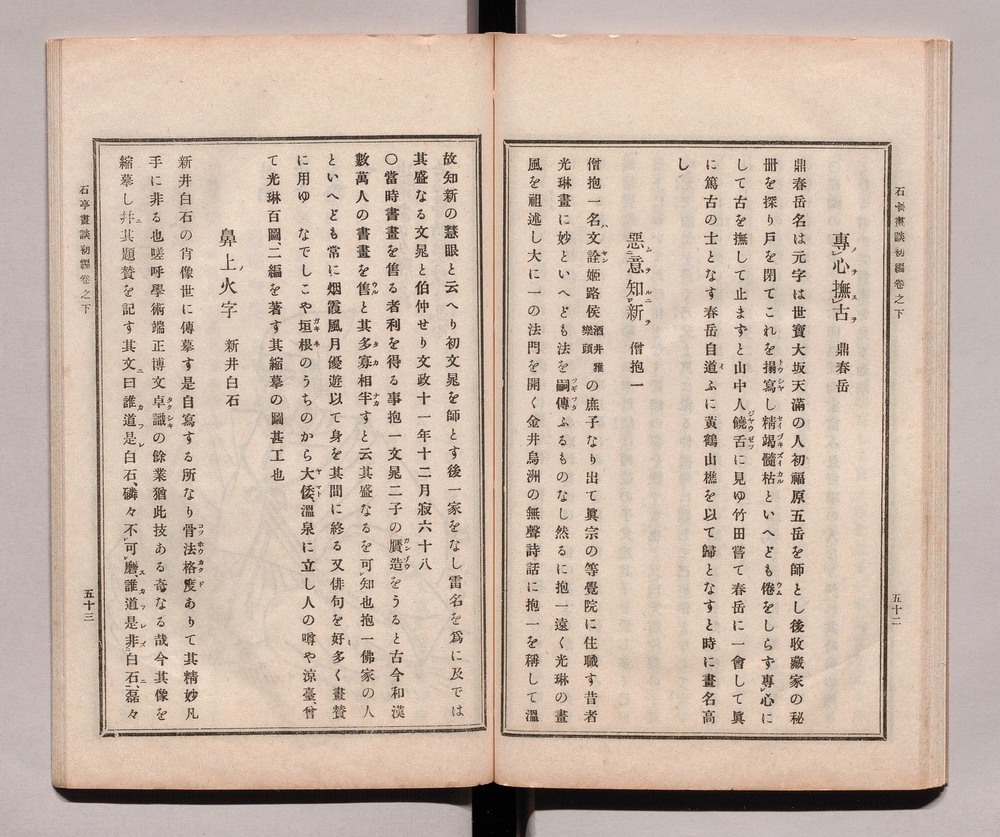 石亭畫談初編卷之下
五十二
專心撫古 鼎春岳
鼎春岳名は元字は世寶大坂天滿の人初福原五岳を師とし後收藏家の秘
册を探り戸を閉てこれを搨寫し精竭髓枯といへども倦をしらす專心に
して古を撫して止ますと山中人饒舌に見ゆ竹田嘗て春岳に一會して眞
に篤古の士となす春岳自道ふに黃鶴山樵を以て歸となすと時に畫名高
し
惡意知新 僧抱一
僧抱一名文詮姬路侯酒井雅樂頭の庶子なり出て眞宗の等覺院に住職す昔者
光琳畫に妙といへども法を嗣傳ふるものなし然るに抱一遠く光琳の畫
風を祖述し大に一の法門を開く金井烏洲の無聲詩話に抱一を稱して溫
故知新の慧眼と云へり初文晁を師とす後一家をなし雷名を爲に及ては
其盛なる文晁と伯仲せり文政十一年十二月寂六十八
〇當時書畫を售る者利を得る事抱一文晁二子の贋造をうると古今和漢
數萬人の書畫を售と其多寡相半すと云其盛なるを可知也抱一佛家の人
といへども常に烟霞風月優遊以て身を其間に終る又俳句を好多く畫賛
に用ゆ なでしこや垣根のうちのから大倭、溫泉に立し人の噂や涼臺、曾
て光琳百圖、二編を著す其縮摹の圖甚工也
鼻上火字 新井白石
新井白石の肖像世に傳摹す是自寫する所なり骨法格度ありて其精妙凡
手に非る也嗟呼學術端正博文卓識の餘業猶此技ある奇なる哉今其像を
縮摹し幷其題賛を記す其文曰誰道是白石、磷々不可磨誰道是非白石、磊々
石亭畫談初編卷之下
五十三